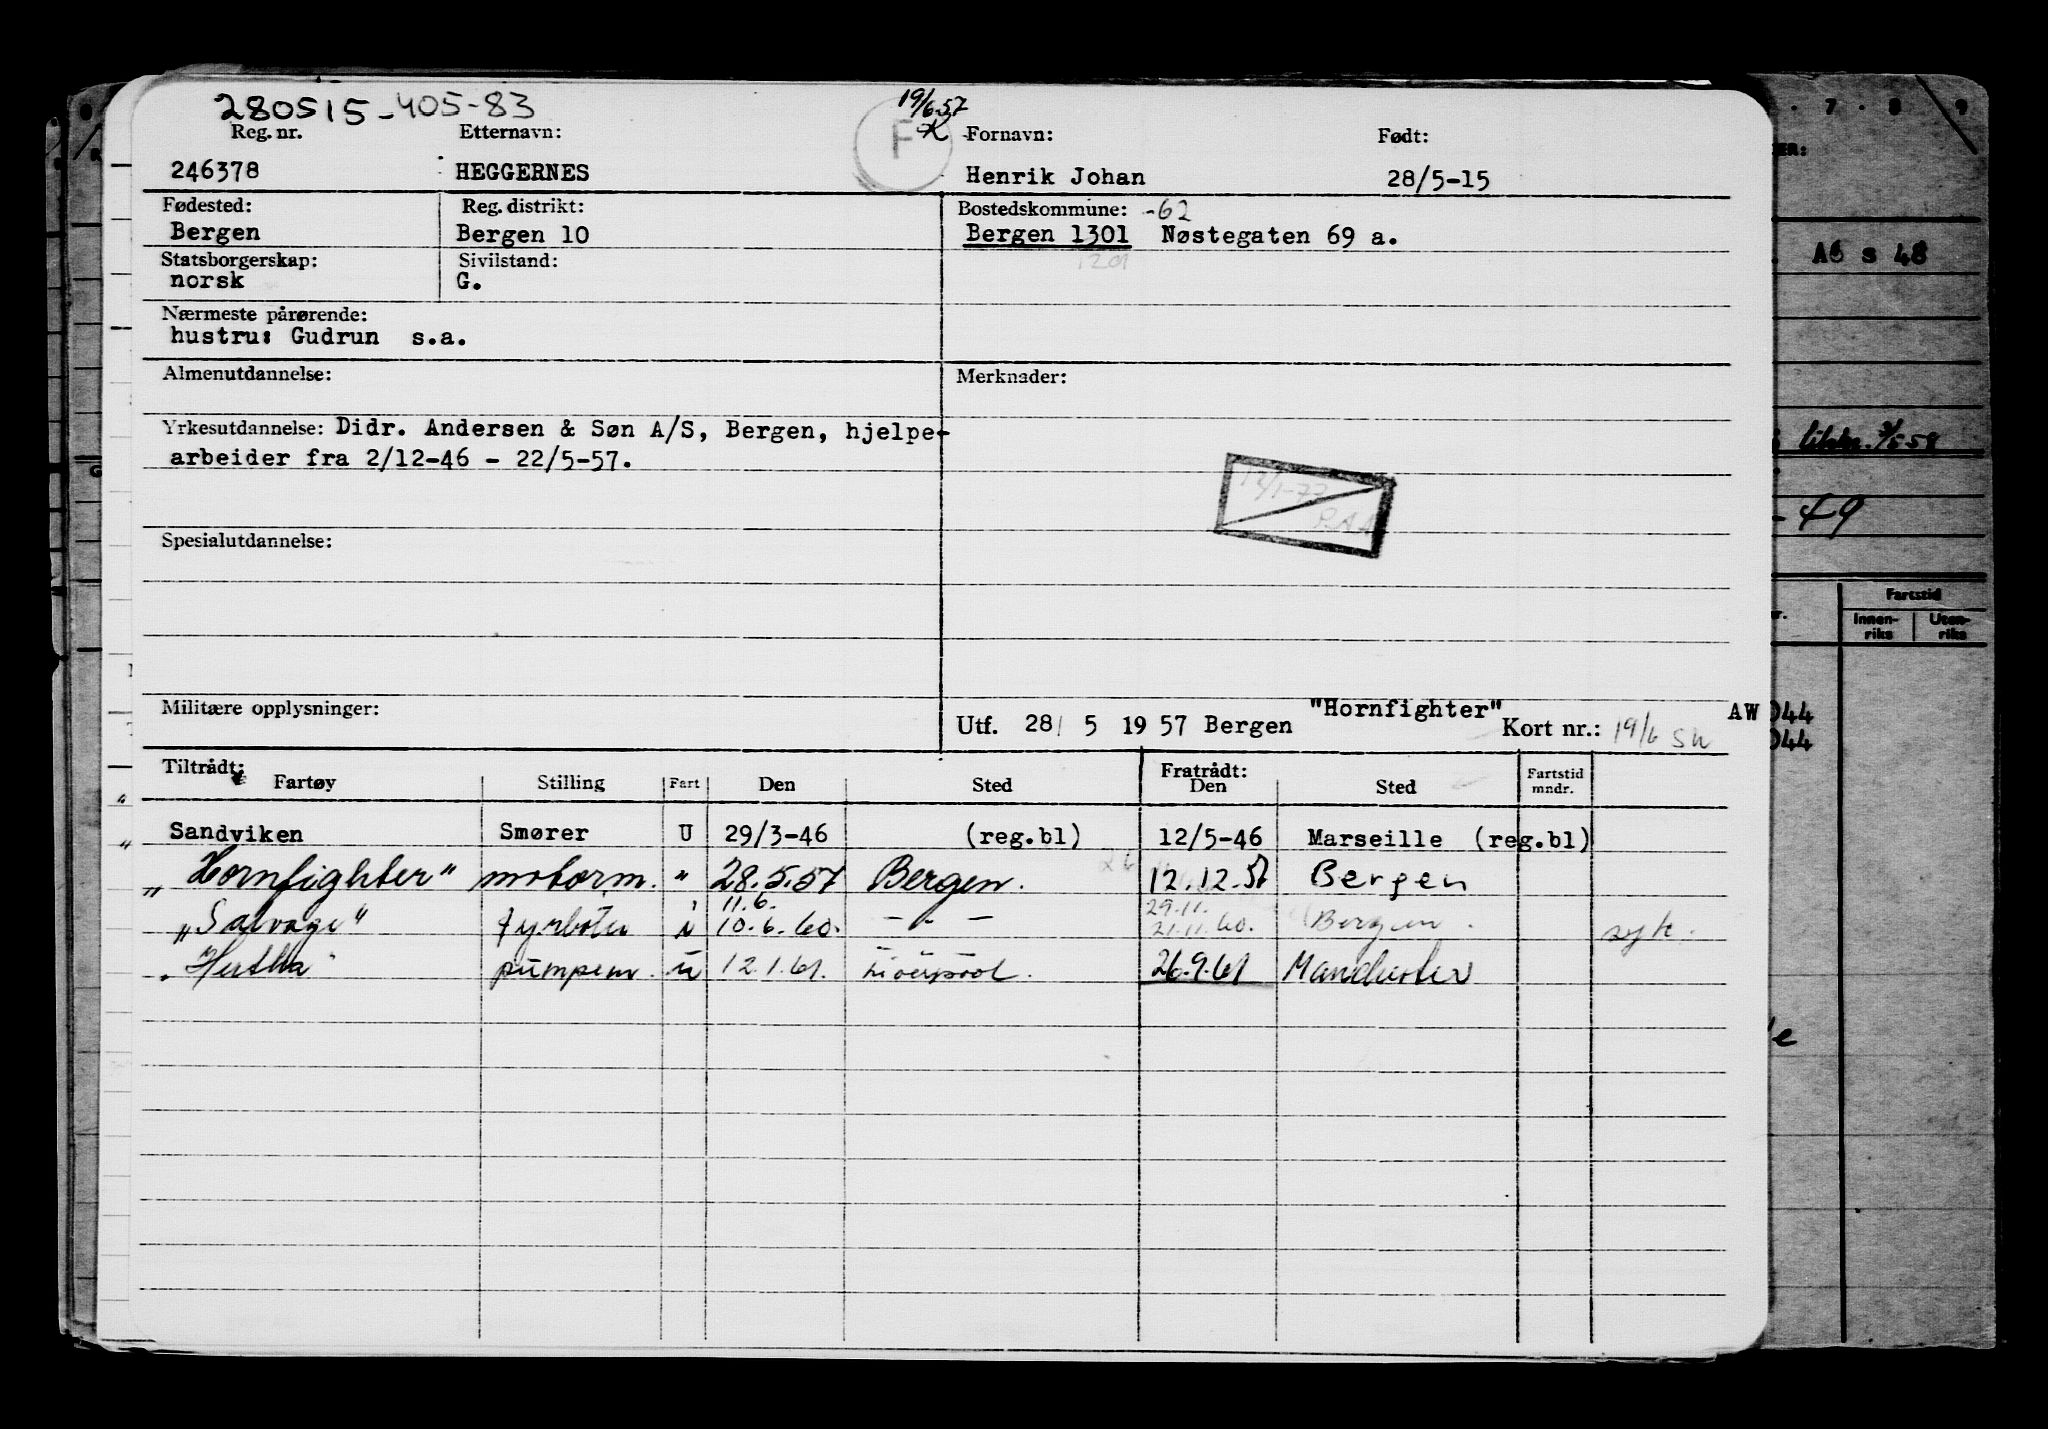 280515-405-83
19/6-57
F
Reg. nr. Etternavn: Fornavn: Født:
246378 HEGGERNES Henrik Johan 28/5-15
Fødested: Reg. distrikt: Bostedskommune: -62
Bergen Bergen 10 Bergen 1301 Nøstegaten 69 a.
Statsborgerskap: Sivilstand:
norsk G.
Nærmeste pårørende:
hustru: Gudrun s.a.
Almenutdannelse: Merknader:
Yrkesutdannelse: Didr. Andersen & Søn A/S, Bergen, hjelpe-
arbeider fra 2/12-46 - 22/5-57.
Spesialutdannelse:
Militære opplysninger: Utf. 28/ 5 19 57 Bergen "Hornfighter" Kort nr.: 19/6 AW
Tiltrådt: Fratrådt:
Fartøy Stilling Fart Den Sted Den Sted Fartstid mndr.
Sandviken Smører U 29/3-46 (reg.bl) 12/5-46 Marseille (reg.bl)
„Hornfighter" motorm. " 28.5.57 Bergen. 12.12.57 Bergen
11.6. 29.11.
„Salvage" fyrbøter i 10.6.60. - " - 21.11.60. Bergen. syk.
„Hertha" pumpem. u 12.1.61. Liverpool. 26.9.61 Manchester
7 8 9
A6 s 48
49
044
044
Fartstid
Innenriks Utenriks